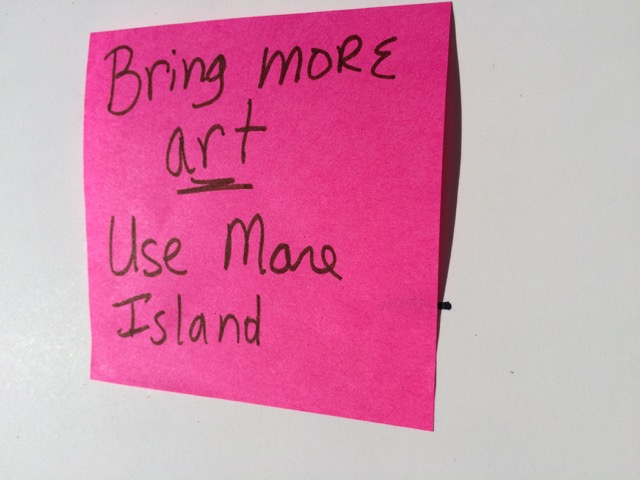 Bring MORE
art
Use More
Island